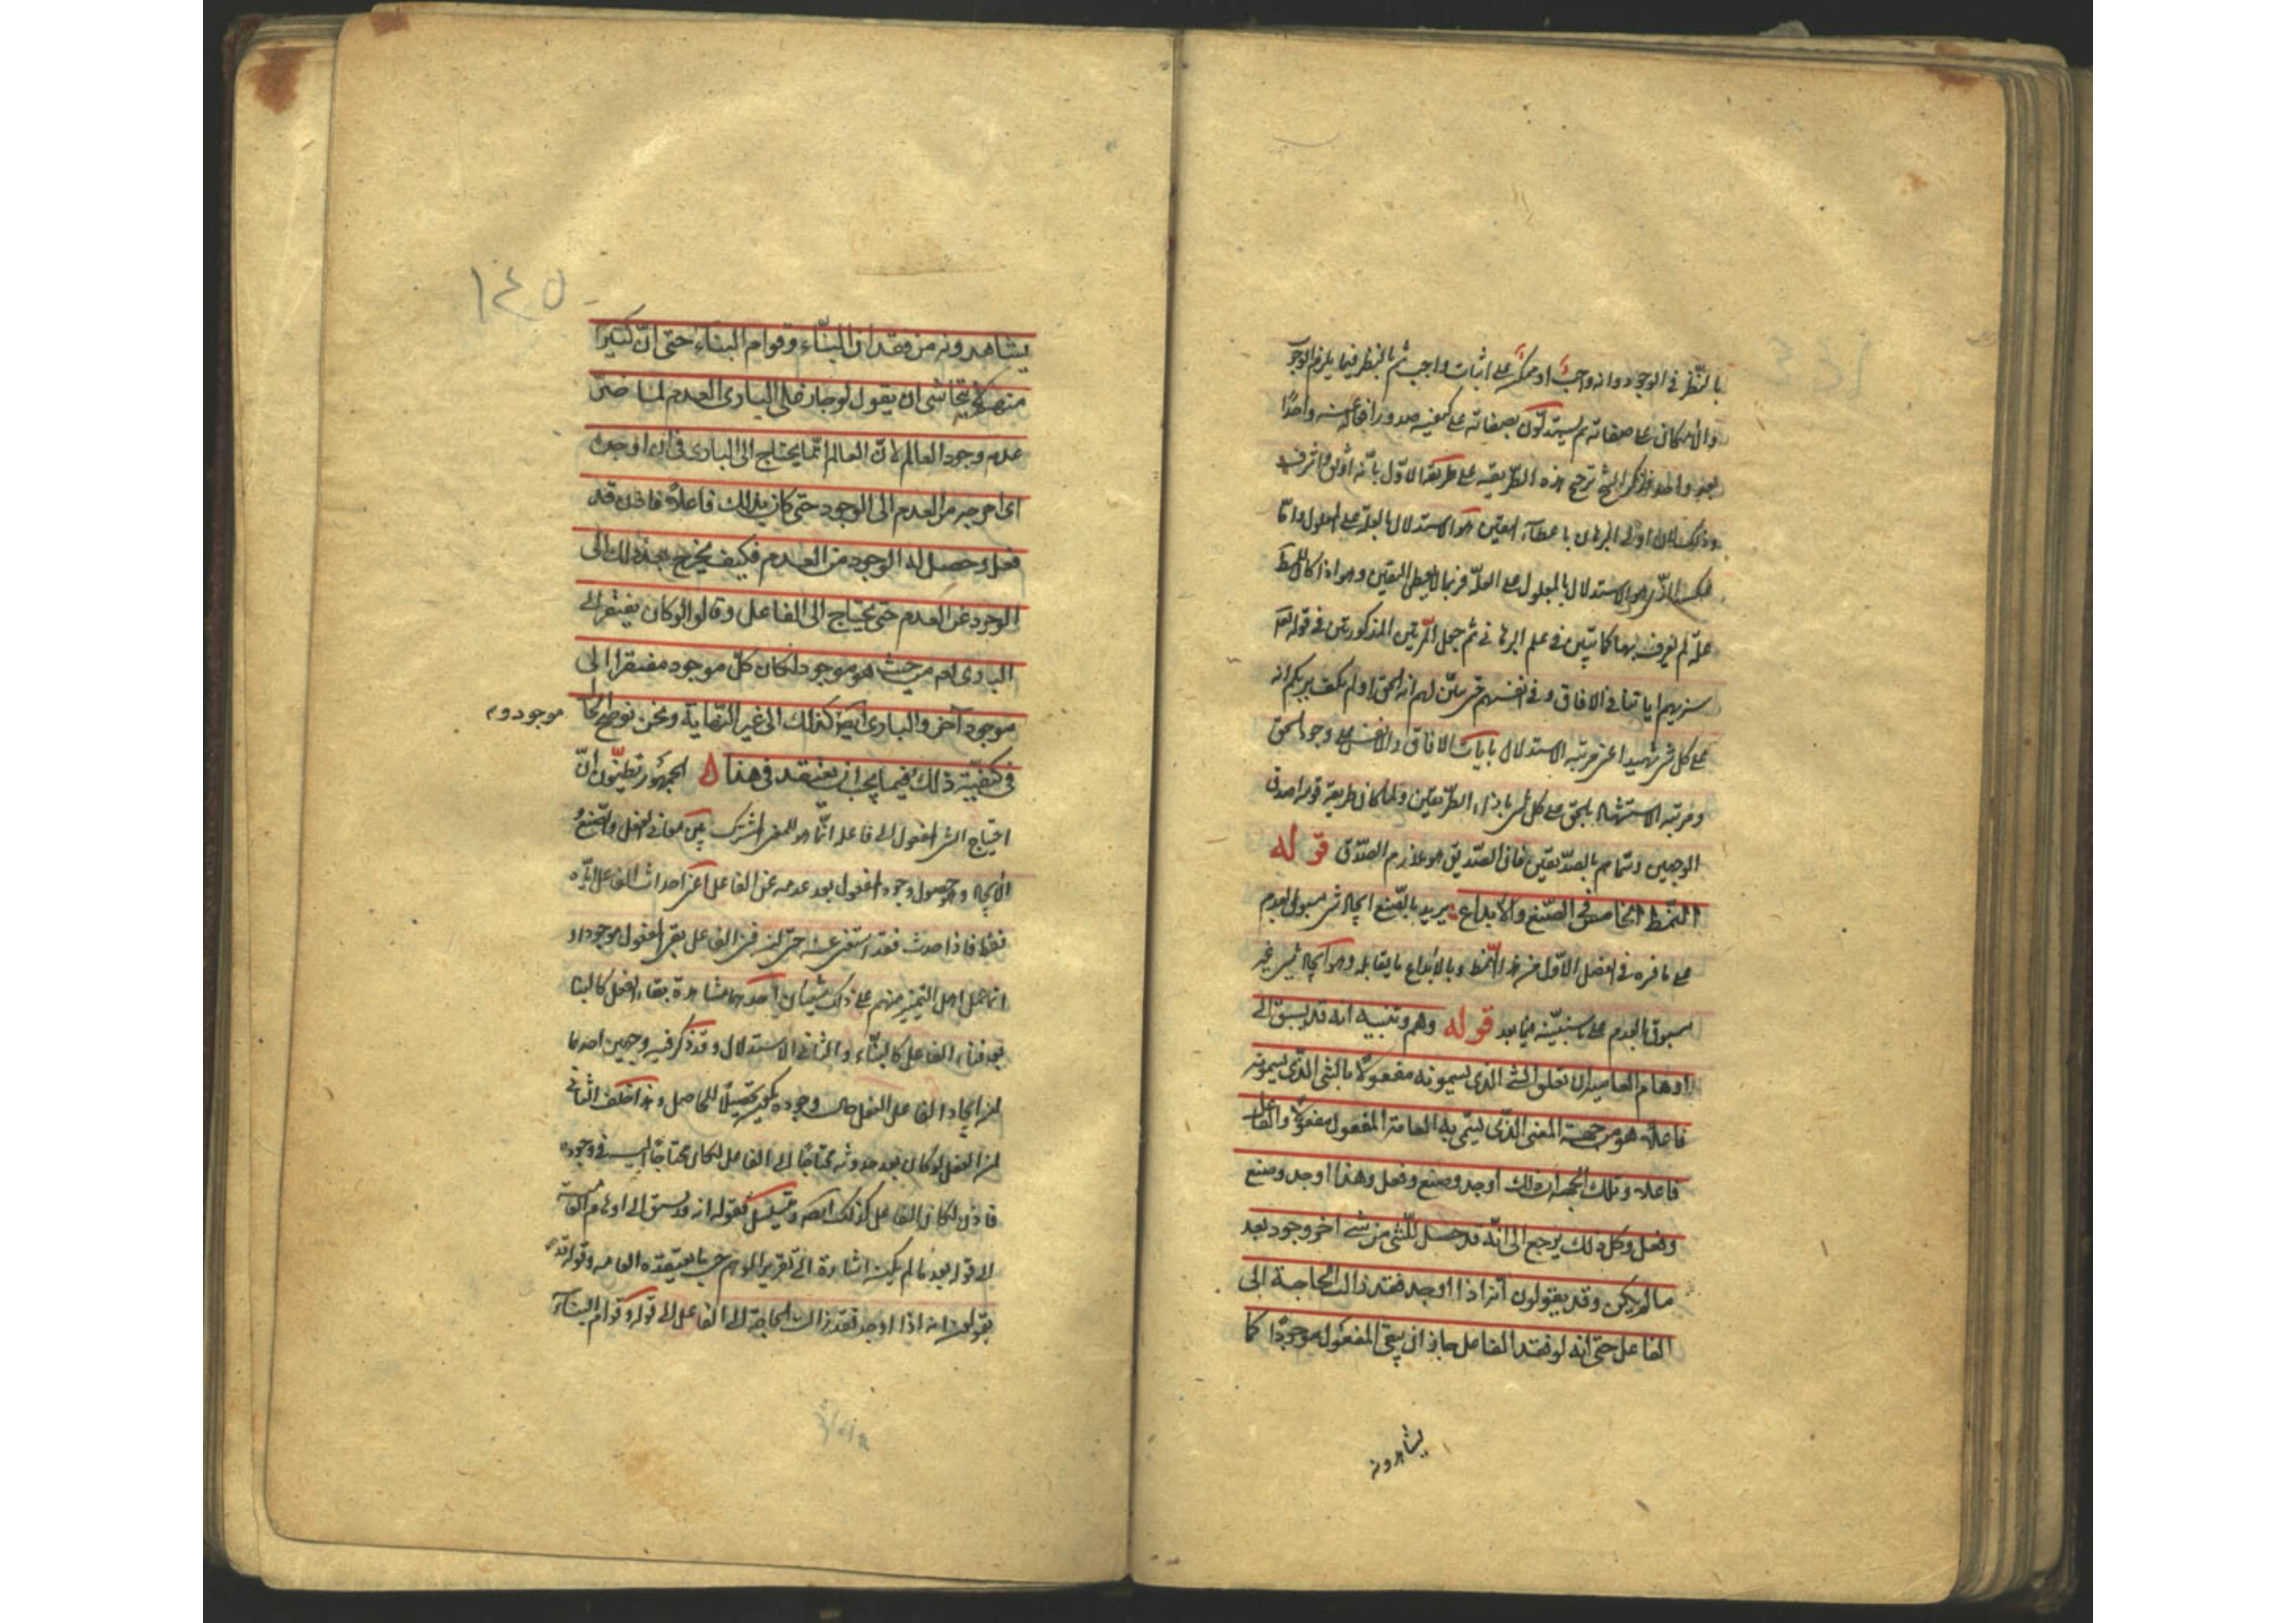 بالنظر فى الوجود وانه واجب او ممكن على اثبات واجب ثم بالنظر فيما يلزم الوجوب
والامكان على صفاته ثم يستدلون بصفاته على كيفية صدور افعاله عنه واحدا
بعد واحد فذكر الشيخ ترجيح هذه الطريقة على طريقة الاول بانه اوثق واشرف
وذلك لان اولى البرهان باعطاء اليقين هو الاستدلال بالعلة على المعلول واما
عكسه الذى هو الاستدلال بالمعلول على العلة فربما لا يعطى اليقين وهو اذا كان للمط
علة لم يعرف بها كما تبين فى علم البرهان ثم جعل المرتبتين المذكورتين فى قوله تعه
سنريهم اياتنا فى الافاق وفى انفسهم حتى يتبين لهم انه الحق او لم يكف بربك انه
على كل شى شهيد اعنى مرتبة الاستدلال بايات الافاق والانفس على وجود الحق
ومرتبة الاستشهاد بالحق على كل شى بازاء الطريقتين ولما كان طريقة قومه اصدق
الوجهين وسماهم بالصديقين فان الصديق هو ملازم الصدق قوله
النمط الخامس فى الصنع والابداع يريد بالصنع ايجاد شى مسبوق بالعدم
على ما فسره فى الفصل الاول من هذا النمط وبالابداع ما يقابله وهو ايجاد شى غير
مسبوق بالعدم على ما سنبينه فيما بعد قوله وهم وتنبيه انه قد يسبق الى
اوهام العامية ان تعلق الشى الذى يسمونه مفعولا بالشى الذى يسمونه
فاعلا هو من جهة المعنى الذى يسمى به العامة المفعول مفعولا والفاعل
فاعلا وتلك الجهة ان ذلك اوجد وصنع وفعل وهذا اوجد وصنع
وفعل وكل ذلك يرجع الى انه قد حصل للشى من شى اخر وجود بعد
ما لم يكن وقد يقولون انه اذا اوجد فقد زالت الحاجة الى
الفاعل حتى انه لو فقد الفاعل جاز ان يبقى المفعول موجودا كما
يشاهدونه
١٤٥
يشاهدونه من فقدان البناء وقوام البناء حتى ان كثيرا
منهم لا يتحاشى ان يقول لو جاز على البارى العدم لما ضر
عدمه وجود العالم لان العالم انما يحتاج الى البارى فى ان اوجده
اى اخرجه من العدم الى الوجود حتى كان بذلك فاعلا فاذن قد
فعل وحصل له الوجود من العدم فكيف يخرج بعد ذلك الى
الوجود عن العدم حتى يحتاج الى الفاعل وقالوا لو كان يفتقر الى
البارى تعه من حيث هو موجود لكان كل موجود مفتقرا الى
موجود آخر والبارى ايضا كذلك الى غير النهاية ونحن نوضح الحال
فى كيفية ذلك فيما يجب ان يعتقد فى هذا الجمهور تظنون ان
احتياج الشى المفعول الى فاعله انما هو للمعنى المشترك بين معانى الفعل والصنع و
الايجاد وهو حصول وجود المفعول بعد عدمه عن الفاعل اعنى احداث الفاعل اياه
فقط فاذا حدث فقد استغنى عنه حتى لو فنى الفاعل بقى المفعول موجودا و
انما حمل اهل التمييز منهم على ذلك شيئان احدهما مشاهدة بقاء الفعل كالبنا
بعد فناء الفاعل كالبناء والثانى الاستدلال وقد ذكر فيه وجهين احدهما
ان ايجاد الفاعل الفعل حال وجوده يكون تحصيلا للحاصل وهو خلف الثانى
ان الفعل لو كان بعد حدوثه محتاجا الى الفاعل لكان محتاجا اليه فى وجوده
فاذن لكان الفاعل كذلك ايضا ويتسلسل فقوله انه قد يسبق الى اوهام العامية
الى قوله بعد ما لم يكن اشارة الى تقرير الوهم حسب ما يعتقده العامة وقوله قد
يقولون انه اذا اوجد فقد زالت الحاجة الى الفاعل الى قوله وقوام البناء